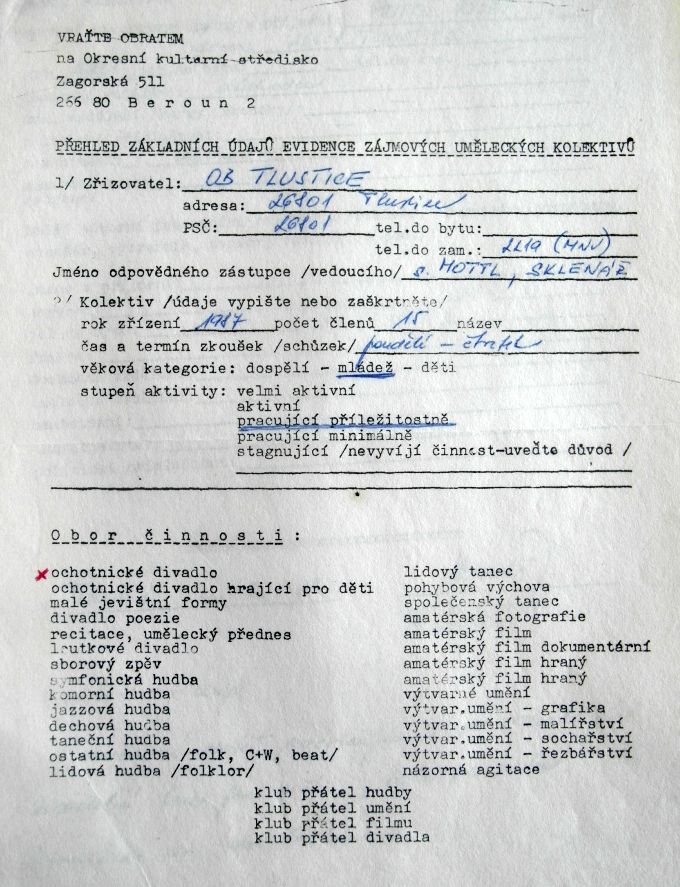 VRAŤTE OBRATEM
na Okresní kulturní středisko
Zagorská 511
266 80 B e r o u n 2
PŘEHLED ZÁKLADNÍCH ÚDAJŮ EVIDENCE ZÁJMOVÝCH UMĚLECKÝCH KOLEKTIVŮ
1/ Zřizovatel: OB TLUSTICE
adresa: 26801 Tlustice
PSČ: 26801 tel.do bytu:
tel.do zam.: 2219 (MNV)
Jméno odpovědného zástupce /vedoucího/ s. MOTTL, SKLENÁŘ
2/ Kolektiv /údaje vypište nebo zaškrtněte/
rok zřízení 1987 počet členů 15 název
čas a termín zkoušek /schůzek/ pondělí - čtvrtek
věková kategorie: dospělí - mládež - děti
stupeň aktivity: velmi aktivní
aktivní
pracující příležitostně
pracující minimálně
stagnující /nevyvíjí činnost-uveďte důvod /
O b o r č i n n o s t i :
x ochotnické divadlo lidový tanec
ochotnické divadlo hrající pro děti pohybová výchova
malé jevištní formy společenský tanec
divadlo poezie amatérská fotografie
recitace, umělecký přednes amatérský film
loutkové divadlo amatérský film dokumentární
sborový zpěv amatérský film hraný
symfonická hudba amatérský film hraný
komorní hudba výtvarné umění
jazzová hudba výtvar.umění - grafika
dechová hudba výtvar.umění - malířství
taneční hudba výtvar.umění - sochařství
ostatní hudba /folk, C+W, beat/ výtvar.umění - řezbářství
lidová hudba /folklor/ názorná agitace
klub přátel hudby
klub přátel umění
klub přátel filmu
klub přátel divadla